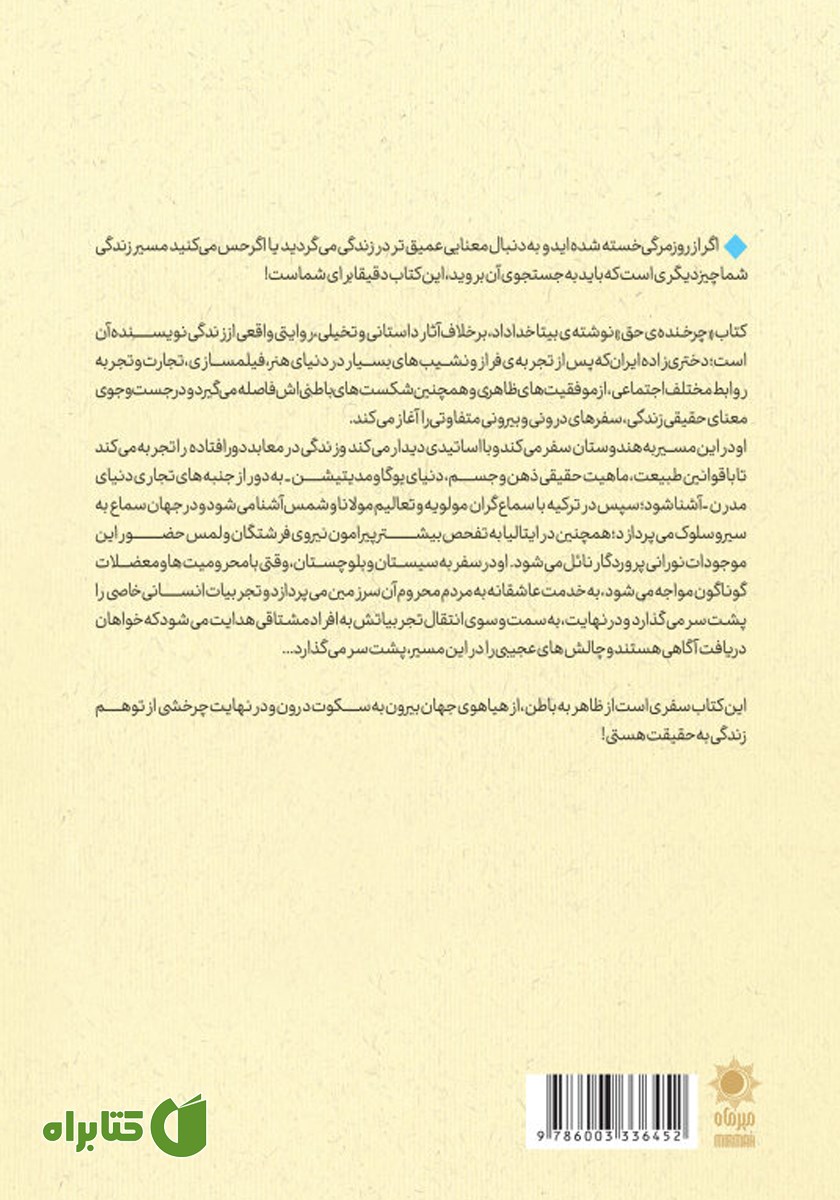 اگر از روزمرگی خسته شده اید و به دنبال معنایی عمیق تر در زندگی می گردید یا اگر حس می کنید مسیر زندگی
شما چیز دیگری است که باید به جستجوی آن بروید، این کتاب دقیقا برای شماست!
کتاب «چرخنده ی حق» نوشته ی بیتا خداداد، برخلاف آثار داستانی و تخیلی، روایتی واقعی از زندگی نویسنده آن
است؛ دختری زاده ایران که پس از تجربه ی فراز و نشیب های بسیار در دنیای هنر، فیلمسازی، تجارت و تجربه
روابط مختلف اجتماعی، از موفقیت های ظاهری و همچنین شکست های باطنی اش فاصله می گیرد و در جست و جوی
معنای حقیقی زندگی، سفرهای درونی و بیرونی متفاوتی را آغاز می کند.
او در این مسیر به هندوستان سفر می کند و با اساتیدی دیدار می کند و زندگی در معابد دورافتاده را تجربه می کند
تا با قوانین طبیعت، ماهیت حقیقی ذهن و جسم، دنیای یوگا و مدیتیشن - به دور از جنبه های تجاری دنیای
مدرن - آشنا شود؛ سپس در ترکیه با سماع گران مولویه و تعالیم مولانا و شمس آشنا می شود و در جهان سماع به
سیر و سلوک می پردازد؛ همچنین در ایتالیا به تفحص بیشتر پیرامون نیروی فرشتگان و لمس حضور این
موجودات نورانی پروردگار نائل می شود. او در سفر به سیستان و بلوچستان، وقتی با محرومیت ها و معضلات
گوناگون مواجه می شود، به خدمت عاشقانه به مردم محروم آن سرزمین می پردازد و تجربیات انسانی خاصی را
پشت سر می گذارد و در نهایت، به سمت و سوی انتقال تجربیاتش به افراد مشتاقی هدایت می شود که خواهان
دریافت آگاهی هستند و چالش های عجیبی را در این مسیر، پشت سر می گذارد...
این کتاب سفری است از ظاهر به باطن، از هیاهوی جهان بیرون به سکوت درون و در نهایت چرخشی از توهم
زندگی به حقیقت هستی!
میرماه
MIRMAH
9 786003 336452
کتابراه